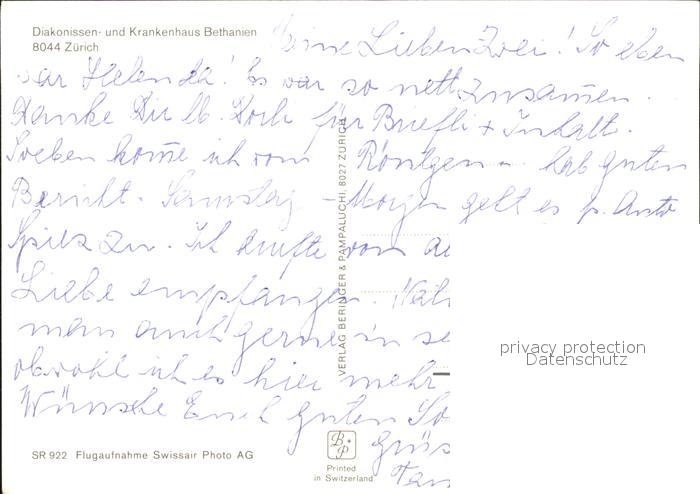 Diakonissen- und Krankenhaus Bethanien
8044 Zürich
Meine Lieben Zwei! So eben
war Helen da! Es war so nett zusam̄en.
Danke Dir lb. für Briefli + Inhalt.
Soeben kom̄e ich vom Röntgen – hab guten
Bericht. Samstag – Morgen geht es p. Auto
Spiez zu. Ich durfte von
Liebe empfangen.
man auch gerne in
obwohl ich es hier mehr
Wünsche Euch guten So
Grüs
Tan
VERLAG BERINGER & PAMPALUCHI, 8027 ZÜRICH
privacy protection
Datenschutz
SR 922 Flugaufnahme Swissair Photo AG
B P
Printed
in Switzerland